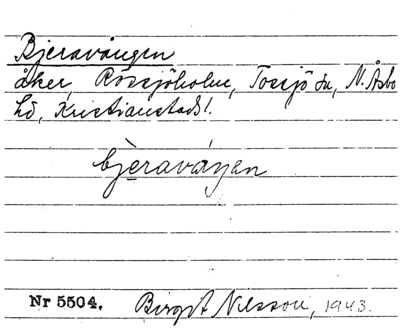 Bjeravången
åker, Rössjöholm, Tossjö sn, N. Åsbo
hd, Kristianstads l.
bjeraváŋen
Nr 5504. Birgit Nilsson, 1943.